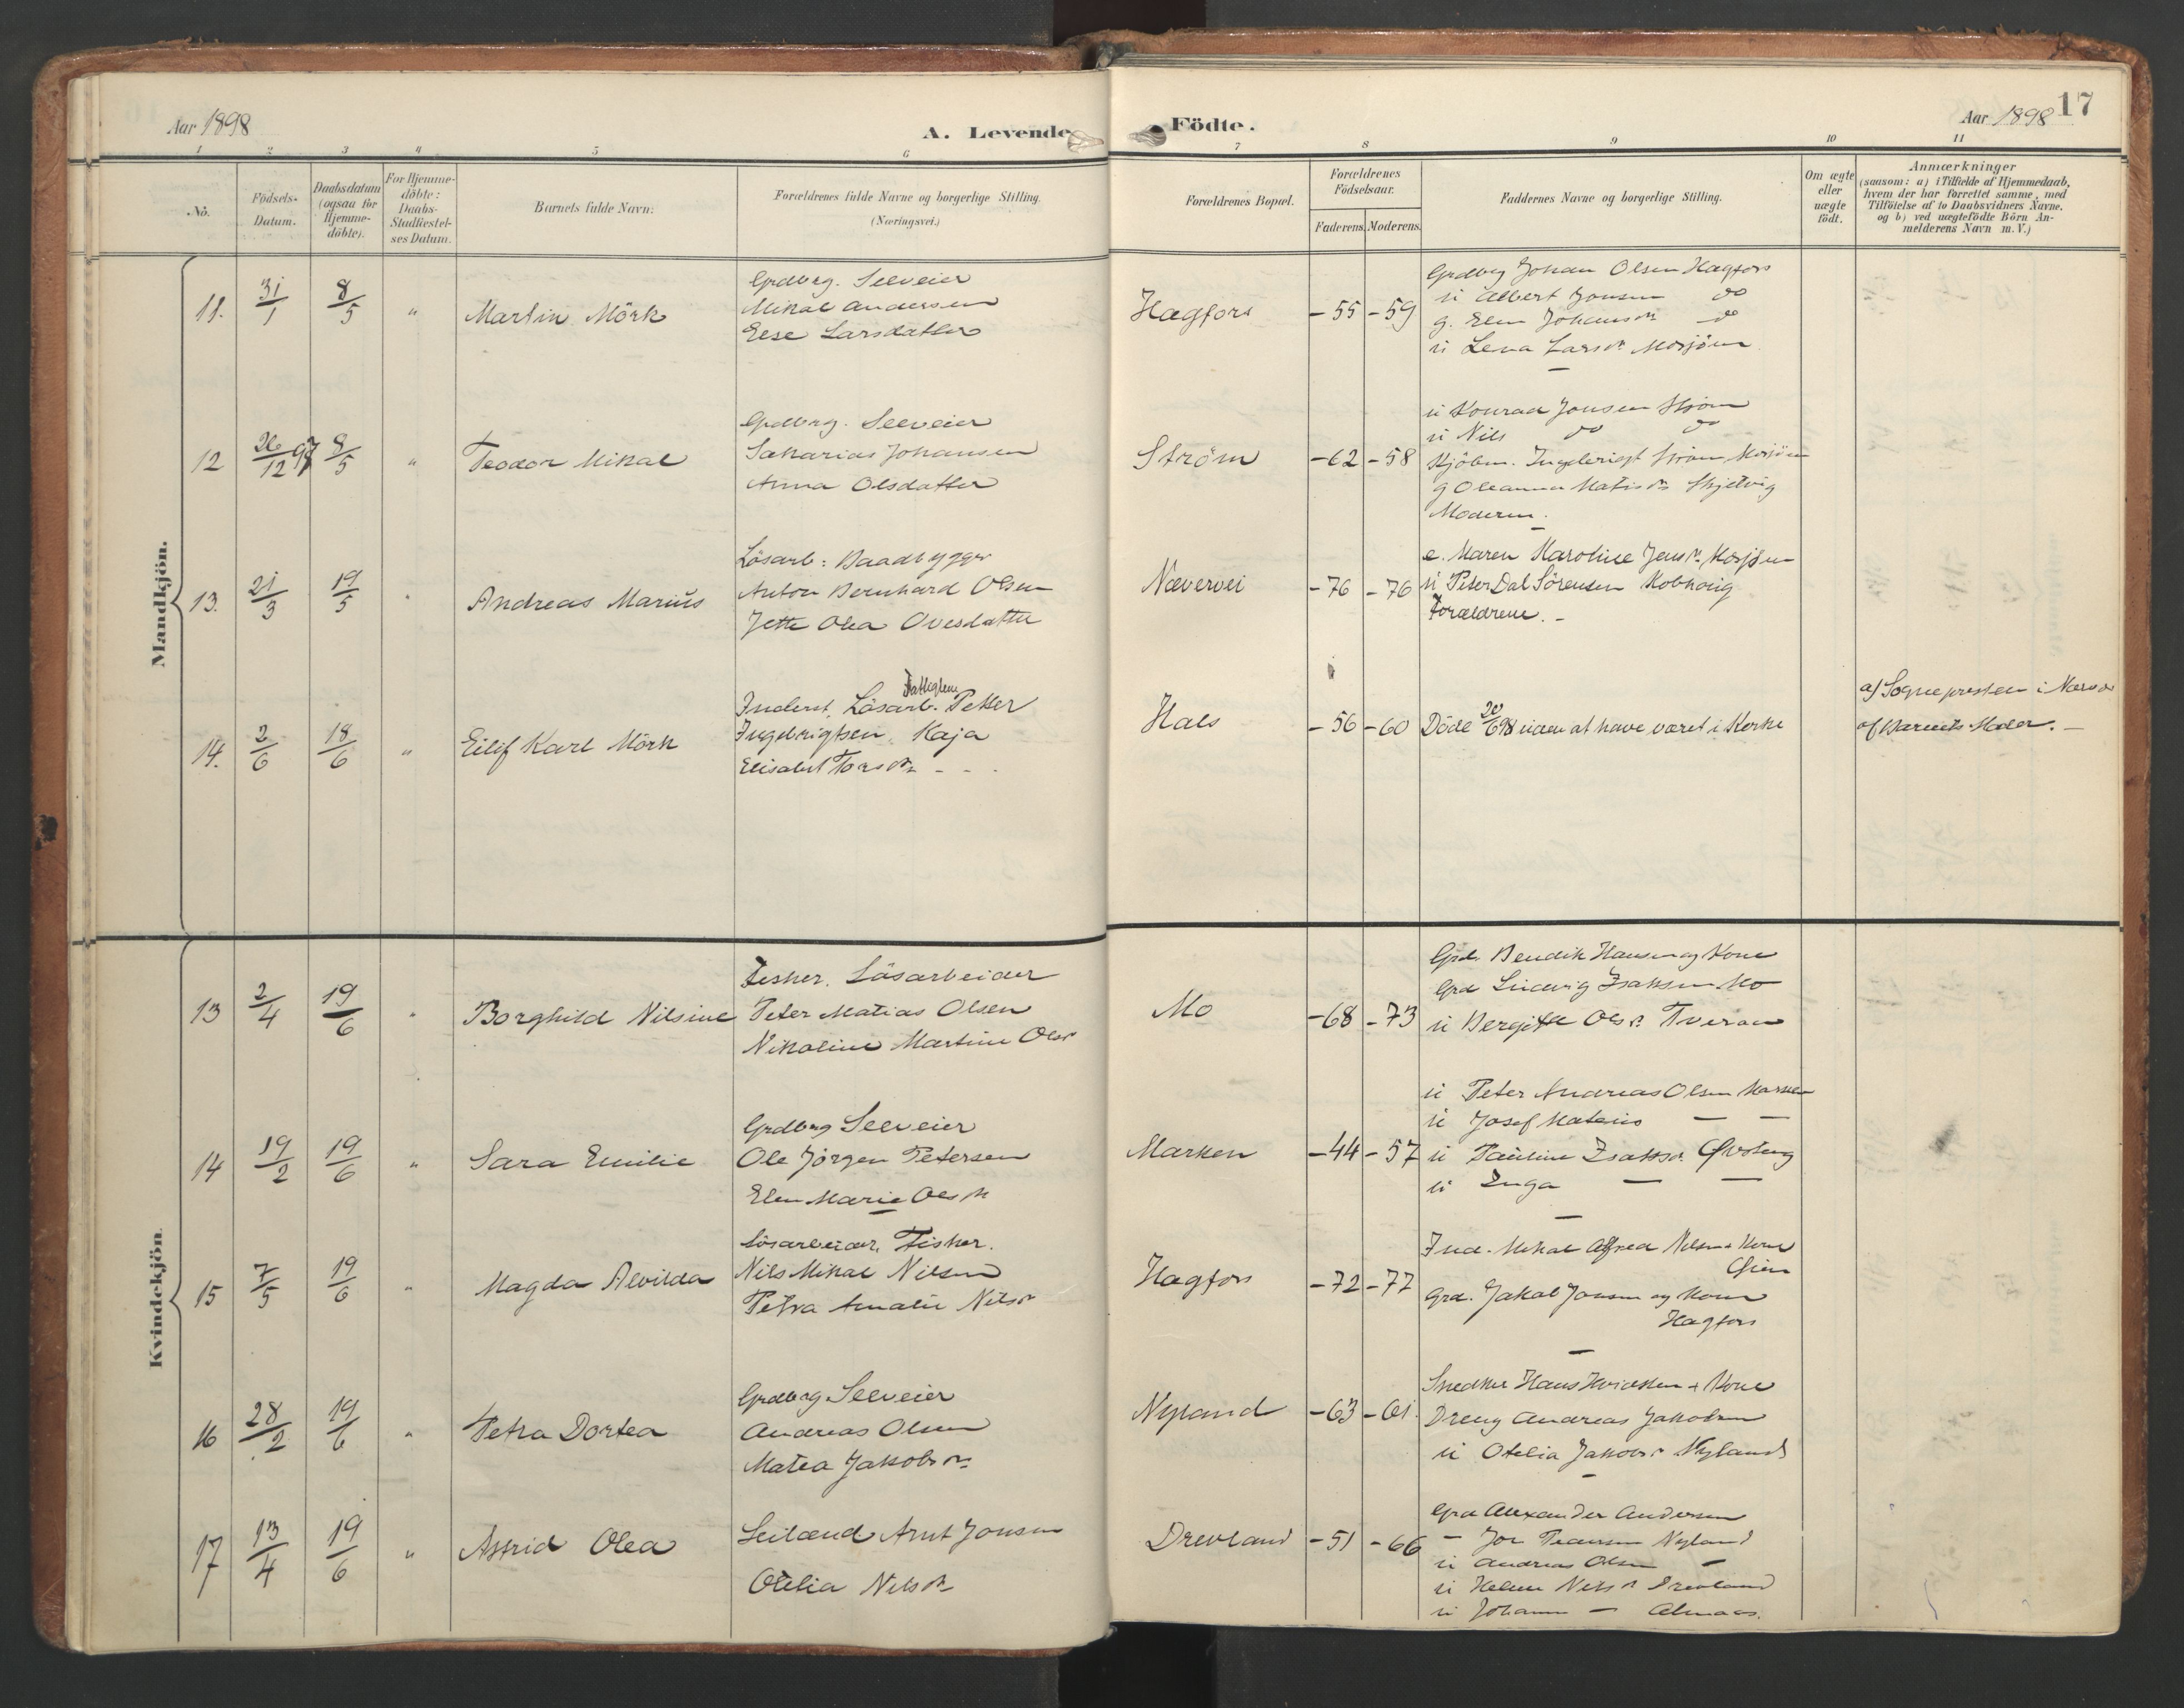 Aar 1898
A. Levende
Födte.
Aar 1898
17
1 2 3 4 5 6 7 8 9 10 11
No.
Födsels-
Datum.
Daabsdatum
(ogsaa for
Hjemme-
döbte).
For Hjemme-
döbte:
Daabs-
Stadfæstel-
ses Datum.
Barnets fulde Navn:
Forældrenes fulde Navne og borgerlige Stilling.
(Næringsvei.)
Forældrenes Bopæl.
Forældrenes
Födselsaar.
Faderens. Moderens.
Faddernes Navne og borgerlige Stilling.
Om ægte
eller
uægte
födt.
Anmærkninger
(saasom: a) i Tilfælde af Hjemmedaab,
hvem der har forrettet samme, med
Tilföielse af to Daabsvidners Navne.
og b) ved uægtefödte Börn An-
melderens Navn m. V.)
Mandkjön.
11. 31/1 8/5 " Martin Mörk
Grdbrg. Selveier
Mikal Andersen
Else Larsdatter
Hagfors -55 -59
Grdbrg Johan Olsen Hagfors
ü Albert Jonsen do
g. Elen Johansdr do
ü Lena Larsdr Mosjöen
12 26/12 97 8/5 " Teodor Mikal
Grdbrg. Selveier
Sakarias Johansen
Anna Olsdatter
Ström -62 -58
ü Konrad Jonsen Ström
ü Nils do do
Kjöbm. Ingebrigt Ström Mosjöen
g Oleanna Matisdr
Moderen.
13. 21/3 19/5 " Andreas Marius
Lösarb: Baadbygger
Anton Bernhard Olsen
Jette Olea Ovesdatter
Nævervei -76 -76
e. Maren Karoline Jensdr, Mosjöen
ü Peter Dal Sörensen
Forældrene. -
14. 2/6 18/6 " Eilif Karl Mörk
Fattiglem
Inderst, Lösarb. Petter
Ingebrigtsen, Kaja
Elisabet Torsdr - - -
Hals -56 -60
Döde 20/6 98 uden at have været i Kirke
af Sognepresten i
af Barnets Moder. -
Kvindekjön.
13 2/4 19/6 " Borghild Nilsine
Fisker, Lösarbeider
Peter Matias Olsen
Nikoline Martine Olsdr
Mo -68 -73
Grd. Bendik Hansen og Kone
Grd Ludvig Isaksen Mo
ü Bergitte Olsdr. Tveraa
14 19/2 19/6 " Sara Emilie
Grdbrg Selveier
Ole Jörgen Petersen
Elen Marie Olsdr
Marken -44 -57
ü Peter Andreas Olsen Marken
ü Josef Mateus — —
ü Pauline Isaksdr.
ü Inga — —
15 7/5 19/6 " Magda Alvilda
Lösarbeider, Fisker.
Nils Mikal Nilsen
Petra Amalie Nilsdr
Hagfors -72 -77
Ind. Mikal Alfred Nilsen + Kone
Grd. Jakob Jonsen og Kone
Hagfors
16 28/2 19/6 " Petra Dortea
Grdbrg Selveier
Andreas Olsen
Matea Jakobsdr
Nyland -63 -61.
Snedker Hans + Kone
Dreng Andreas Jakobsen
ü Otelia Jakobsdr Nyland
17 13/4 19/6 " Astrid Olea
Leilænd. Arnt Jonsen
Otelia Nilsdr
Drevland -51 -66
Grd Alexander Andersen
— Jon Pedersen Nyland
ü Andreas Olsen —
ü Helene Nilsdr Drevland
ü Johanna — Almaas.